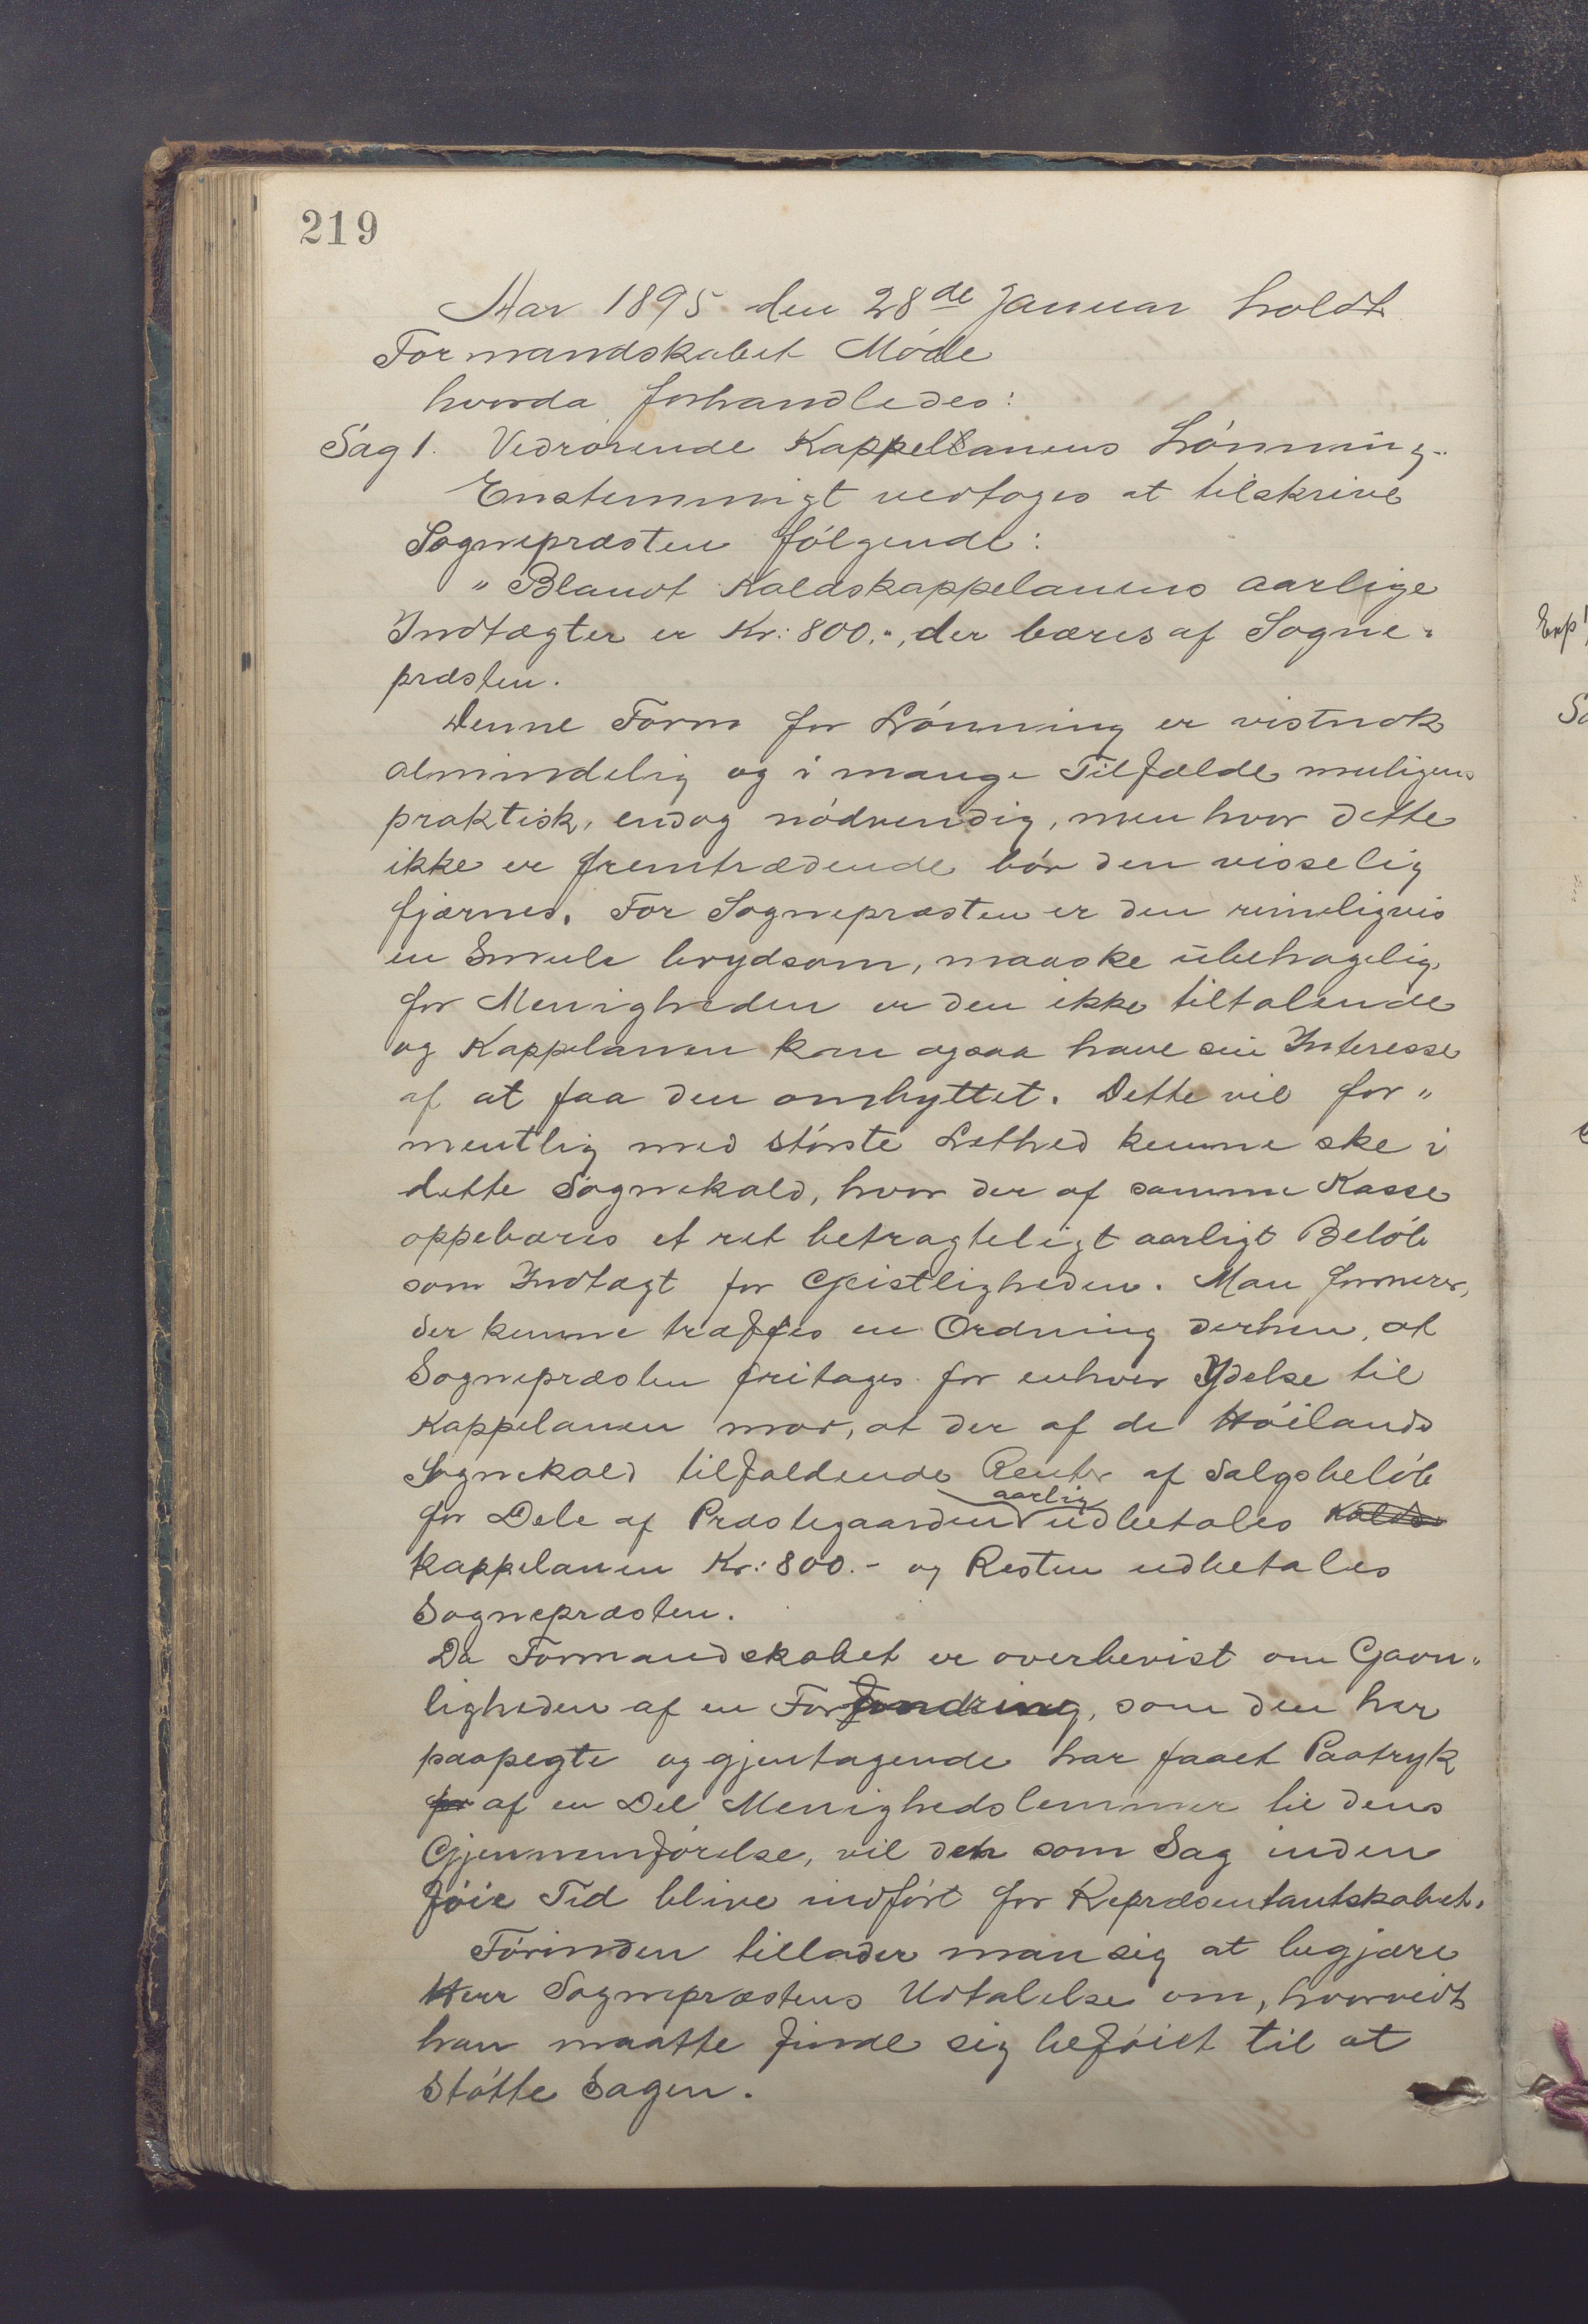 219
Aar 1895 den 28de Januar holdt
Formandskabet Møde
hvorda forhandledes:
Sag 1. Vedrørende Kappellanens Lønning.
Enstemmigt vedtoges at tilskrive
Sognepræsten følgende:
"Blandt Kaldskappelanens aarlige
Indtægter er Kr: 800.-, der bæres af Sogne-
præsten.
Denne Form for Lønning er vistnok
almindelig og i mange Tilfælde muligens
praktisk, endog nødvendig, men hvor dette
ikke er fremtrædende bør den visselig
fjærnes. For Sognepræsten er den rimeligvis
en Smule brydsom, maaske ubehagelig,
for Menigheden er den ikke tiltalende
og Kappelanen kan ogsaa have sin Interesse
af at faa den ombyttet. Dette vil for"
mentlig med største Lethed kunne ske i
dette Sognekald, hvor der af samme Kasse
oppebæres et ret betragteligt aarligt Beløb
som Indtægt for Geistligheden. Man formener,
der kunne træffes en Ordning derhen, at
Sognepræsten fritages for enhver Ydelse til
Kappelanen mod, at der af de Høilands
Sognekald tilfaldende Renter af Salgsbeløb
for Dele af Præstegaarden aarlig udbetales Kalds
kappelanen Kr: 800.- og Resten udbetales
Sognepræsten.
Da Formandskabet er overbevist om Gavn"
ligheden af en Forandring, som den her
paapegte og gjentagende har faaet Paatryk
for af en Del Menighedslemmer til dens
Gjennemførelse, vil den som Sag inden
føie Tid blive indført for Repræsentantskabet.
Førinden tillader man sig at begjære
Herr Sognepræstens Udtalelse om, hvorvidt
han maatte finde sig beføiet til at
støtte Sagen.
Exp